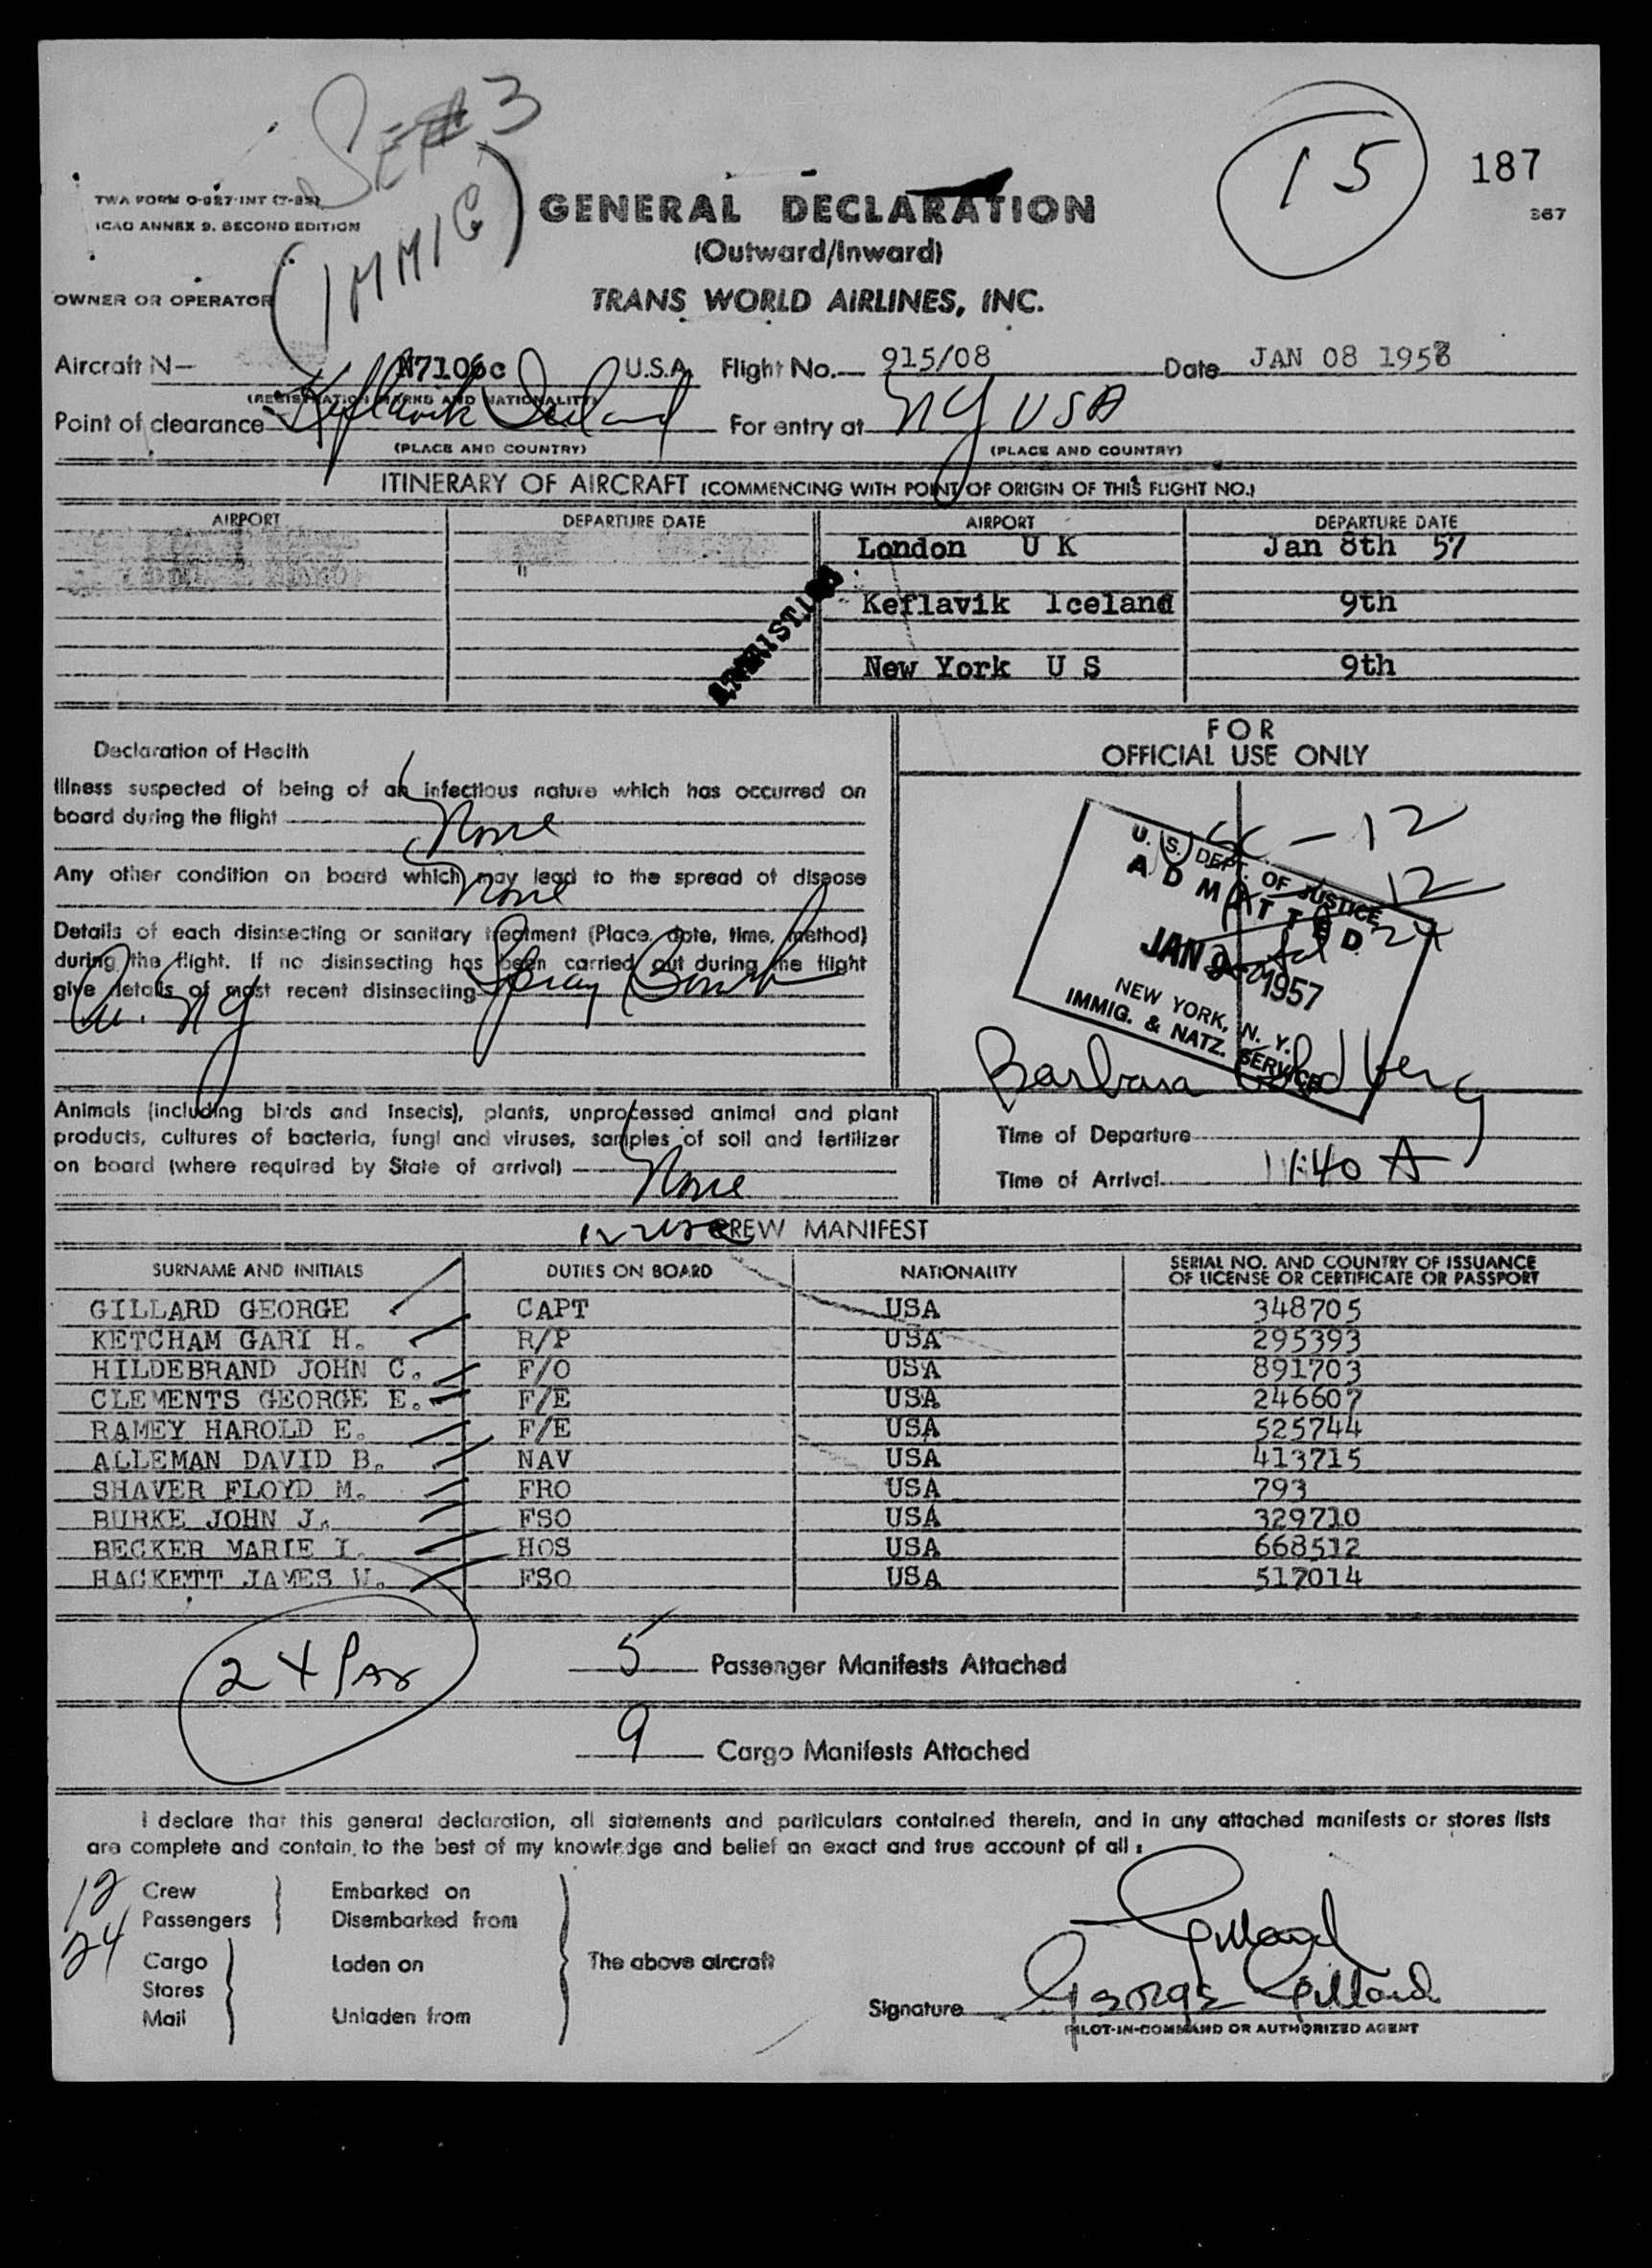 SET #3
(IMMIG)
15
187
367
TWA FORM O-927-INT
ICAO ANNEX 9. SECOND EDITION
GENERAL DECLARATION
(Outward/Inward)
OWNER OR OPERATOR TRANS WORLD AIRLINES, INC.
Aircraft N— N7106c U.S.A. Flight No.— 915/08 Date JAN 08 195
(REGISTRATION MARKS AND NATIONALITY)
Point of clearance Keflavik Iceland For entry at NY USA
(PLACE AND COUNTRY) (PLACE AND COUNTRY)
ITINERARY OF AIRCRAFT (COMMENCING WITH POINT OF ORIGIN OF THIS FLIGHT NO.)
AIRPORT DEPARTURE DATE AIRPORT DEPARTURE DATE
London U K Jan 8th 57
Keflavik Iceland 9th
New York U S 9th
Declaration of Health
Illness suspected of being of an infectious nature which has occurred on
board during the flight None
Any other condition on board which may lead to the spread of disease
None
Details of each disinsecting or sanitary treatment (Place, date, time, method)
during the flight. If no disinsecting has been carried out during the flight
give details of most recent disinsecting Spray Bomb
NY
FOR
OFFICIAL USE ONLY
- 12
12
24
U. S. DEPT. OF JUSTICE
ADMITTED
JAN 9 1957
NEW YORK, N. Y.
IMMIG. & NATZ. SERVICE
Barbara Goldberg
Animals (including birds and insects), plants, unprocessed animal and plant
products, cultures of bacteria, fungi and viruses, samples of soil and fertilizer
on board (where required by State of arrival) None
Time of Departure
Time of Arrival 11:40 A
CREW MANIFEST
SURNAME AND INITIALS DUTIES ON BOARD NATIONALITY SERIAL NO. AND COUNTRY OF ISSUANCE
OF LICENSE OR CERTIFICATE OR PASSPORT
GILLARD GEORGE CAPT USA 348705
KETCHAM GARI H. R/P USA 295393
HILDEBRAND JOHN C. F/O USA 891703
CLEMENTS GEORGE E. F/E USA 246607
RAMEY HAROLD E. F/E USA 525744
ALLEMAN DAVID B. NAV USA 413715
SHAVER FLOYD M. FRO USA 793
BURKE JOHN J. FSO USA 329710
BECKER MARIE I. HOS USA 668512
HACKETT JAMES W. FSO USA 517014
24 Pax
5 Passenger Manifests Attached
9 Cargo Manifests Attached
I declare that this general declaration, all statements and particulars contained therein, and in any attached manifests or stores lists
are complete and contain, to the best of my knowledge and belief an exact and true account of all :
12 Crew Embarked on
24 Passengers Disembarked from
Cargo Laden on The above aircraft
Stores
Mail Unladen from
Gillard
Signature George Gillard
PILOT-IN-COMMAND OR AUTHORIZED AGENT